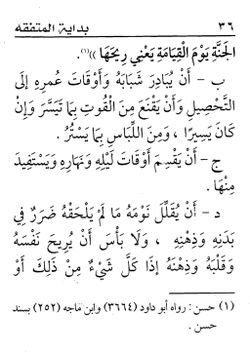 ٣٦ بداية المتفقه
الجَنَّةِ يَوْمَ الْقِيَامَةِ يَعْنِي رِيحَهَا »(١).
ب – أَنْ يُبَادِرَ شَبَابَهُ وَأَوْقَاتَ عُمرِهِ إِلَى
التَّحْصِيلِ وَأَنْ يَقْنَعَ مِنَ الْقُوتِ بِمَا تَيَسَّرَ وَإِنْ
كَانَ يَسِيرًا ، وَمِنَ اللِّبَاسِ بِمَا يَسْتُرُ .
ج – أَنْ يَقْسِمَ أَوْقَاتَ لَيْلِهِ وَنَهَارِهِ وَيَسْتَفِيدَ
مِنْهَا .
د – أَنْ يُقَلِّلَ نَوْمَهُ مَا لَمْ يَلْحَقْهُ ضَرَرٌ فِي
بَدَنِهِ وَذِهْنِهِ ، وَلَا بَأْسَ أَنْ يُرِيحَ نَفْسَهُ
وَقَلْبَهُ وَذِهْنَهُ إِذَا كَلَّ شَيْءٌ مِنْ ذَلِكَ أَوْ
(١) حسن : رواه أبو داود (٣٦٦٤) وابن ماجه (٢٥٢) بسند
حسن .